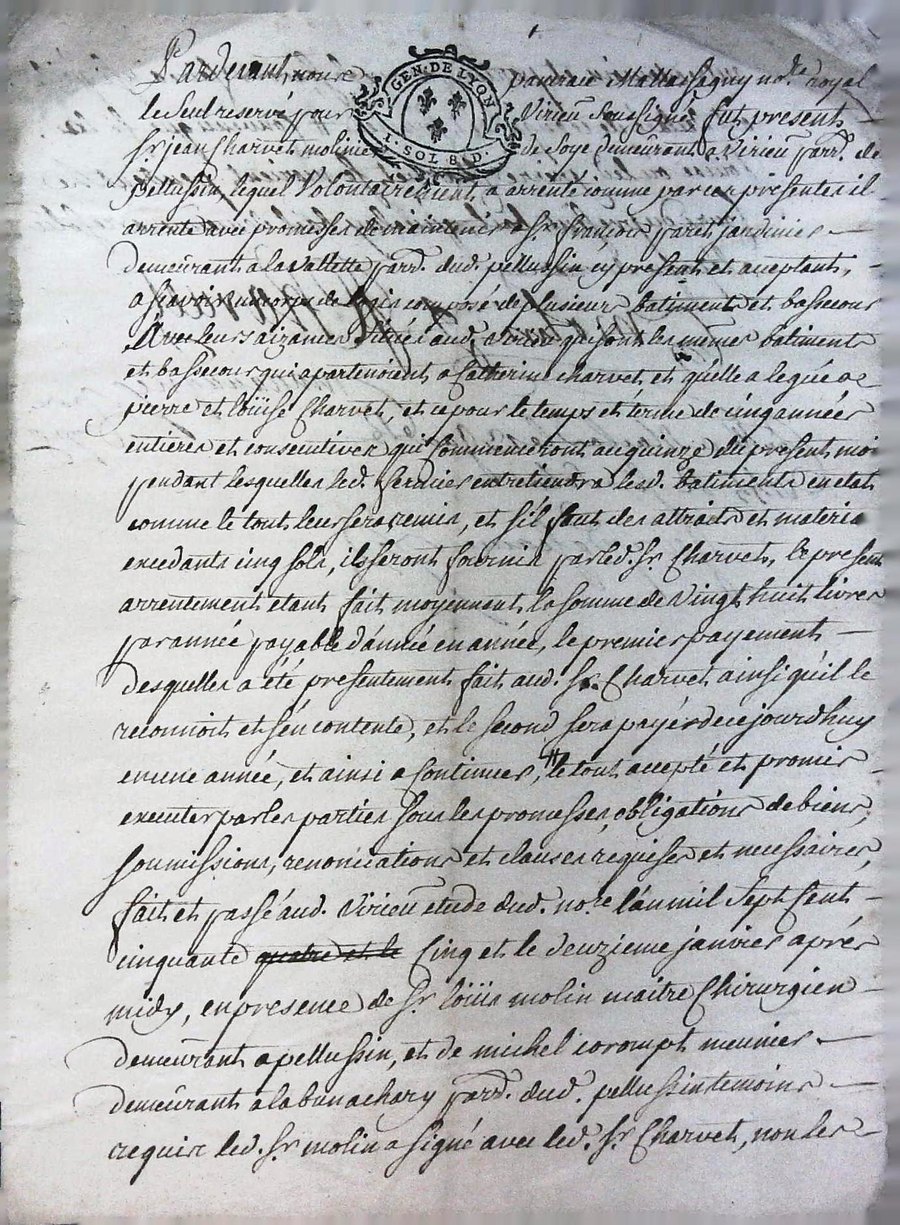 Pardevant nous pancrace Mattassigny no.re royal
GEN. DE LYON
1. SOL 8 D.
le seul reservé pour Virieu soussigné fut present
Sr. jean Charvet molinier de soye demeurant a Virieu parr. de
pellussin, lequel Volontairement a arrenté comme par ces presentes il
arrente avec promesses de maintenir a Sr. françois paret jardinier
demeurant a la Vallette parr. dud. pellussin cy present et acceptant,
a sçavoir un corps de logis composé de plusieur batiment et bassecour
Avec leurs aizances situés aud. Virieu qui sont les mêmes batiment
et bassecour qui apartenoient a Catherine Charvet et quelle a legué a
pierre et loüise Charvet, et ce pour le temps et terme de cinq années
entieres et consecutives qui Commenceront au quinze du present moi
pendant lesquelles led. fermier entretiendra lesd. batiments en etat
comme le tout leur sera remis, et s'il faut des attraits et materia
excedants cinq sols, ils seront fournis par led. Sr. Charvet, le present
arrentement etant fait moyennant la somme de Vingt huit livres
par année payable d'année en année, le premier payement
desquelles a été presentement fait aud. Sr. Charvet ainsi qu'il le
reconnoit et s'en contente, et le second sera payé de ce jourdhuy
en une année, et ainsi a Continuer, # le tout accepté et promis
executer par les parties sous les promesses, obligations de biens,
soumissions, renonciations et clauses requises et necessaires,
fait et passé aud. Virieu etude dud. no.re l'an mil Sept Cent
cinquante quatre et le Cing et le deuzieme janvier aprés
midy, en presence de Sr. loüis molin maitre Chirurgien
demeurant a pellussin, et de michel corompt meunier
demeurant a la bunachary parr. dud. pellussin temoins
requis led. Sr. molin a signé avec led. Sr. Charvet, non les